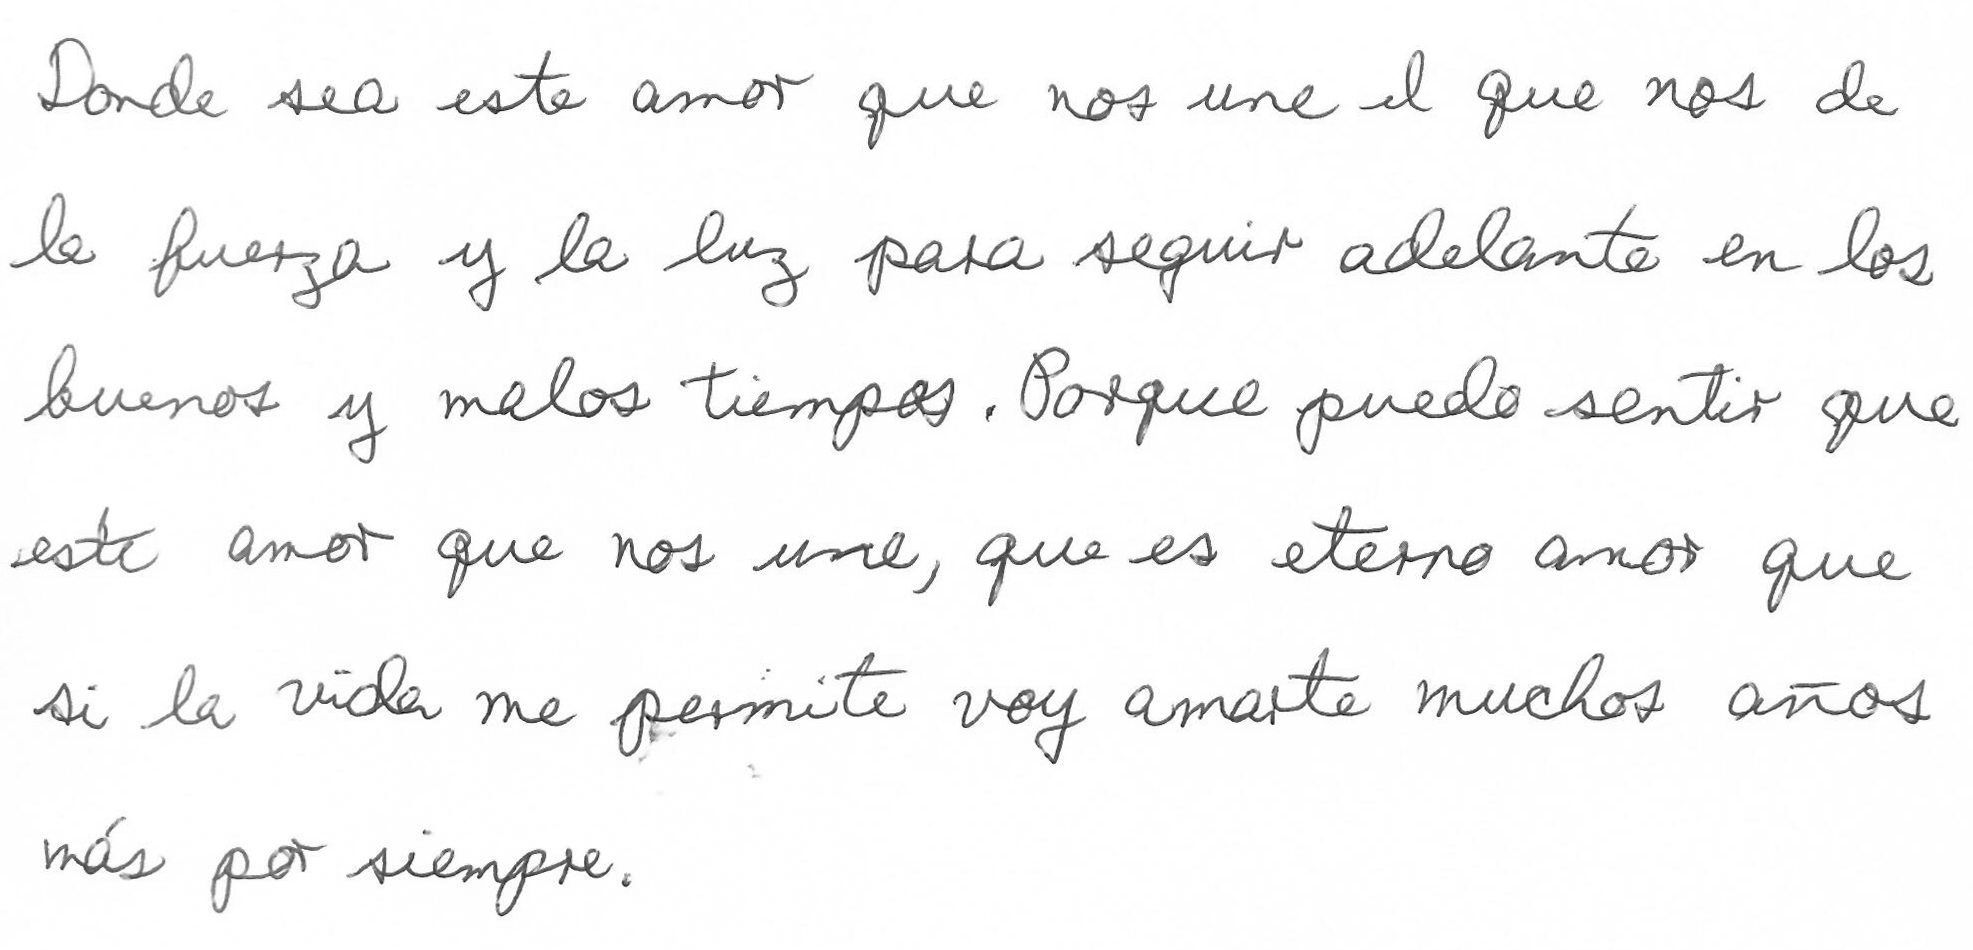 Donde sea este amor que nos une el que nos de
la fuerza y la luz para seguir adelante en los
buenos y malos tiempos. Porque puedo sentir que
este amor que nos une, que es eterno amor que
si la vida me permite voy amarte muchos años
más por siempre.